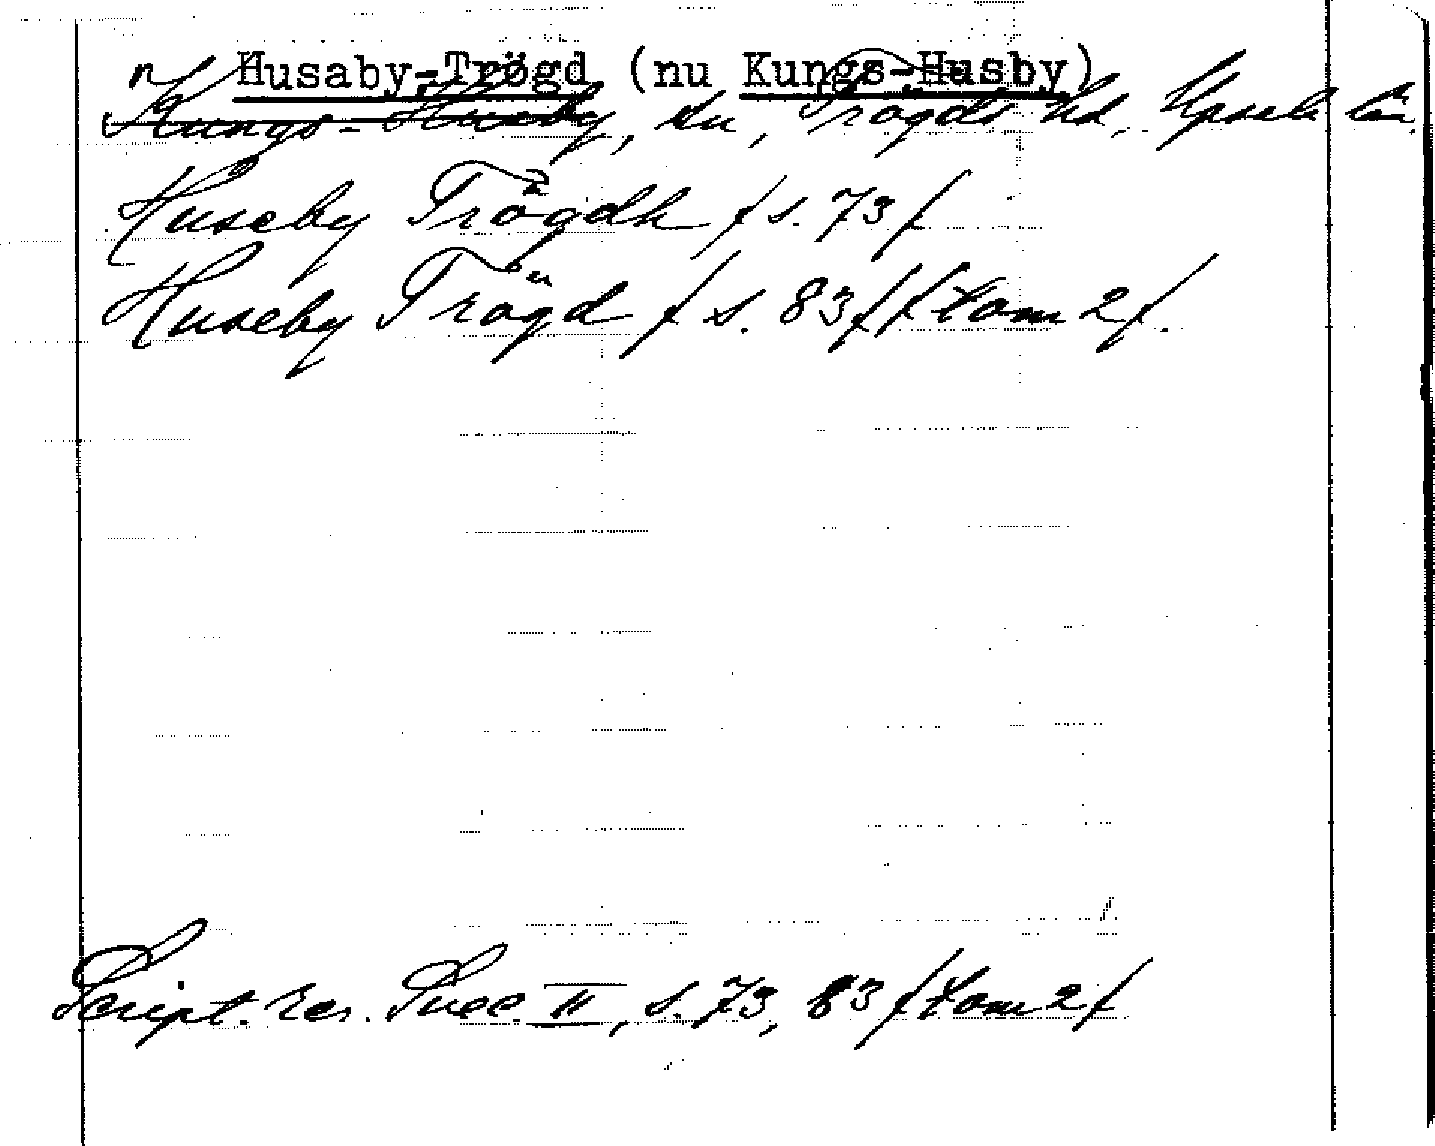 Husaby-Trögd (nu Kungs-Husby)
Kungs-Husby, sn, Trögds hd, Upsala län.
Huseby Trögdh / s. 73 /
Huseby Trögd / s. 83 / / tom 2 /.
Script. rer. Suec. II, s. 73, 83 / tom 2 /